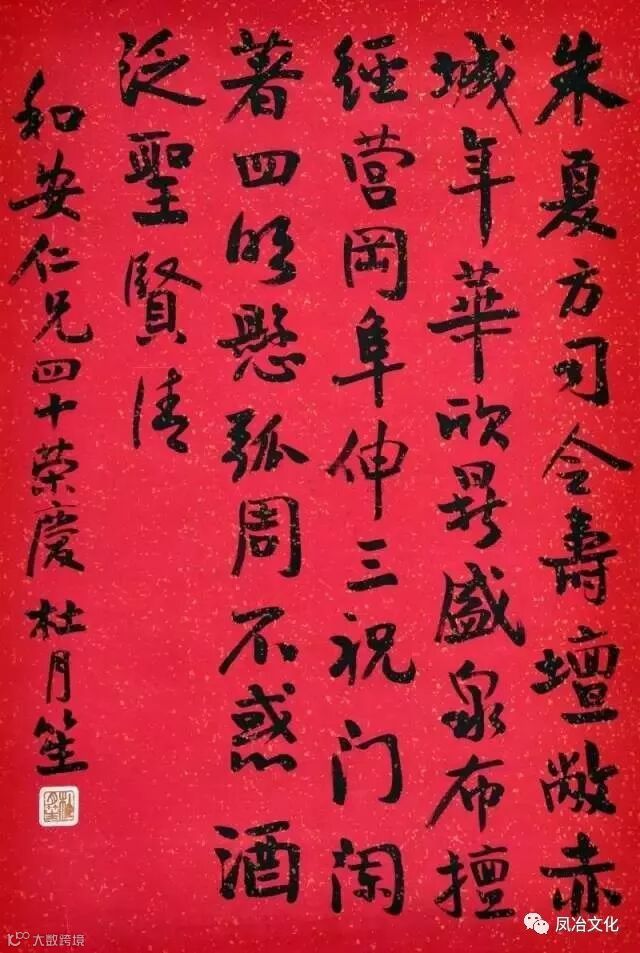 朱夏方司令壽壇敞赤
城年華欣鼎盛泉布擅
經营岡阜伸三祝门阑
著四明懸弧周不惑酒
泛聖賢清
和安仁兄四十荣慶 杜月笙
凤冶文化
大数跨境